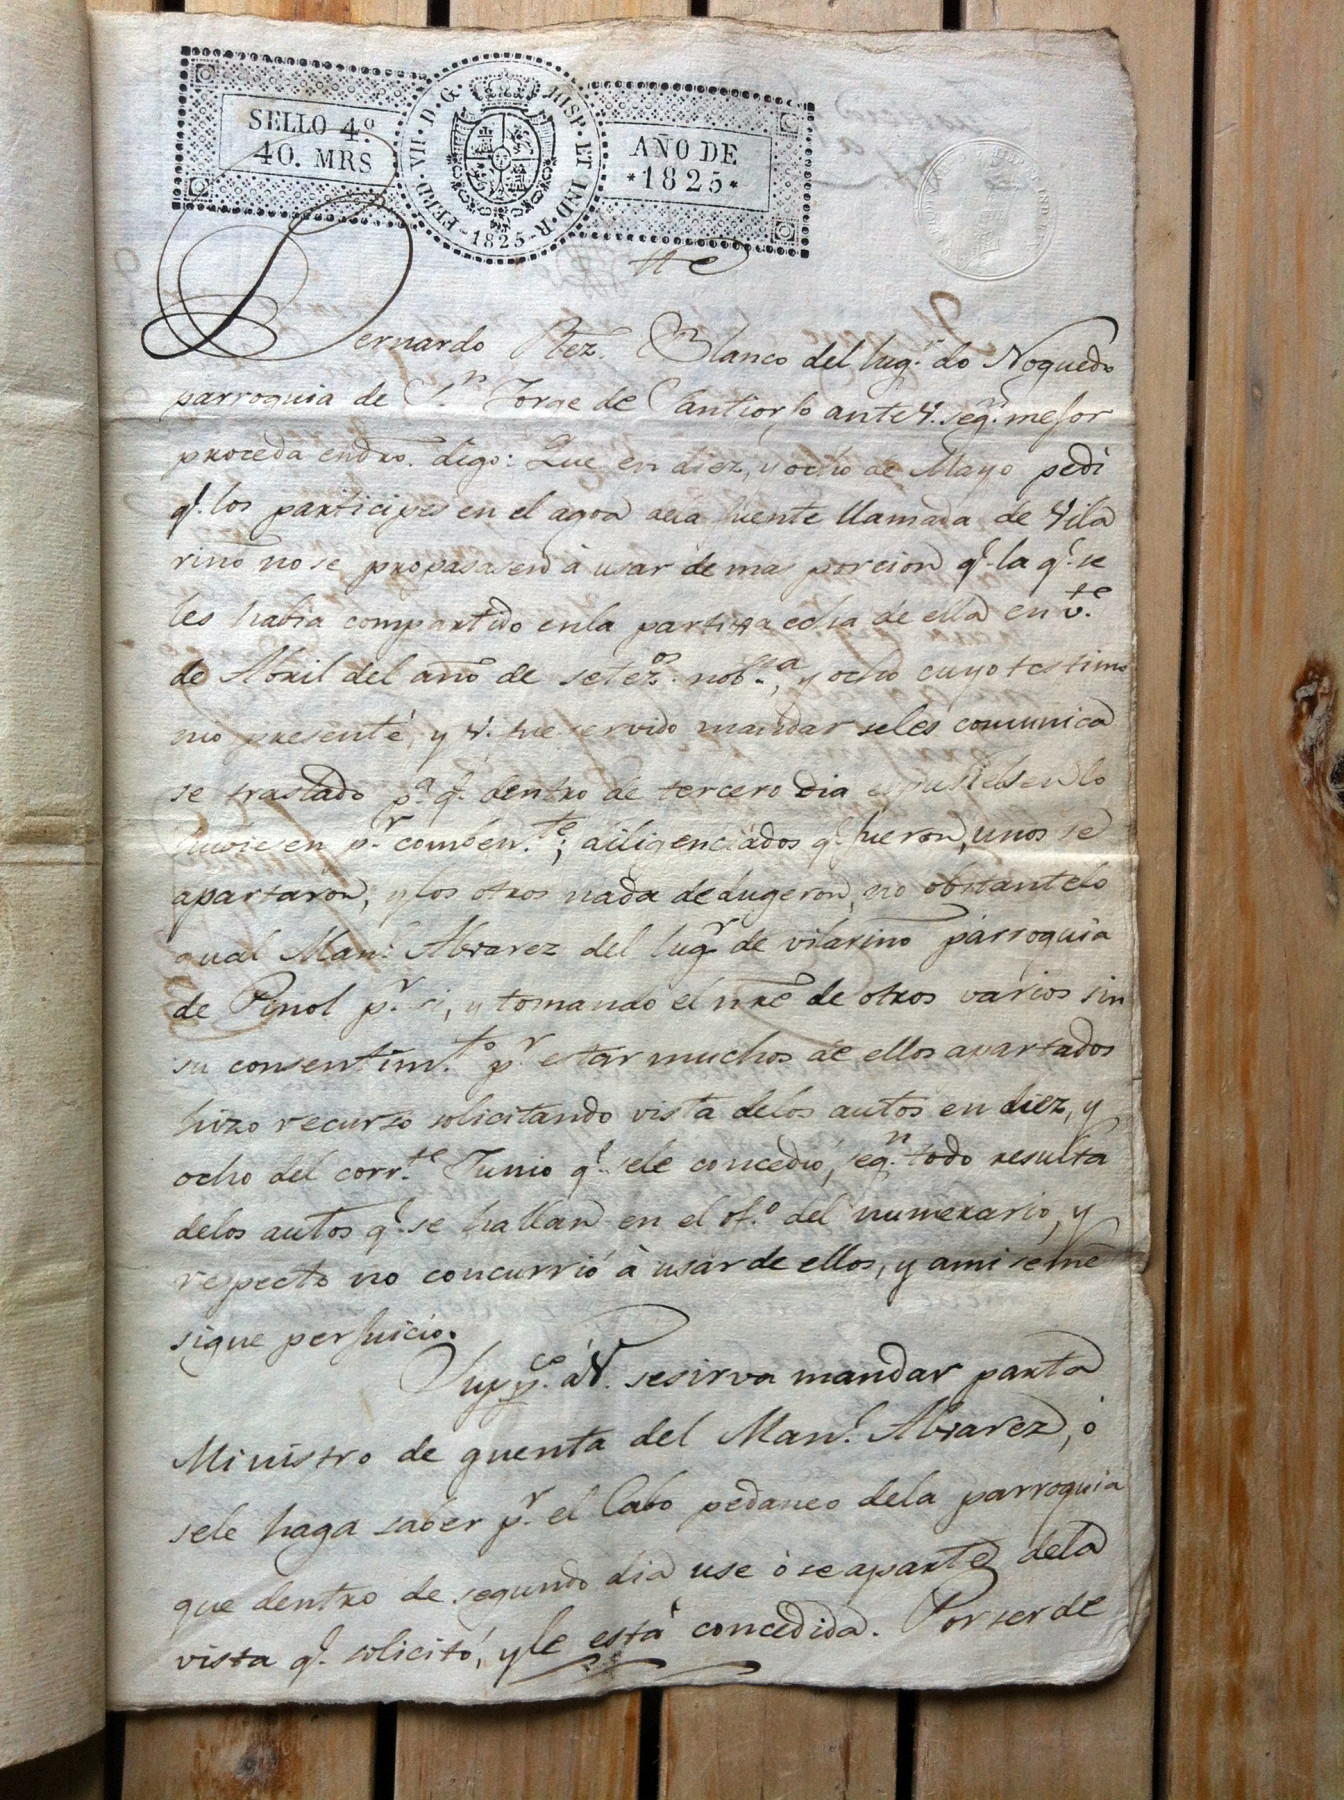 SELLO 4º
40. MRS
FERD. VII. D. G. HISP. ET IND. R.
1825
AÑO DE
*1825*
tte
Bernardo Rez. Blanco del lugr. do Noguedo
parroquia de Sn. Jorge de ante V. segn. mejor
proceda endro. digo: Que en diez, y ocho de Mayo pedi
q.e los participes en el agoa dela fuente llamada de Vila
rino no se propasasen à usar de mas porcion q.e la q.e se
les habia compartido enla partija echa de ella en v.te
de Abril del año de setezos. nobta., y ocho cuyo testimo
nio presenté, y V. fue servido mandar seles comunica
se traslado pa. q.e dentro de tercero dia espusiesen lo
tubiesen pr. comben.te; diligenciados q.e fueron, unos se
apartaron, y los otros nada dedugeron, no obstantelo
qual Manl. Alvarez del lugr. de vilarino parroquia
de Pinol pr. si, y tomando el nre de otros varios sin
su consentim.to pr. estar muchos de ellos apartados
hizo recurso solicitando vista delos autos en diez, y
ocho del corr.te Junio q.e sele concedió, segn. todo resulta
delos autos q.e se hallan en el of.o del numerario, y
respecto no concurrió à usar de ellos, y ami seme
sigue perjuicio.
Supp.co à V. sesirva mandar parta
Ministro de quenta del Manl. Alvarez, ò
sele haga saber pr. el Cabo pedaneo dela parroquia
que dentro de segundo dia use ò se aparte dela
vista q.e solicitó, y le está concedida. Por ser de